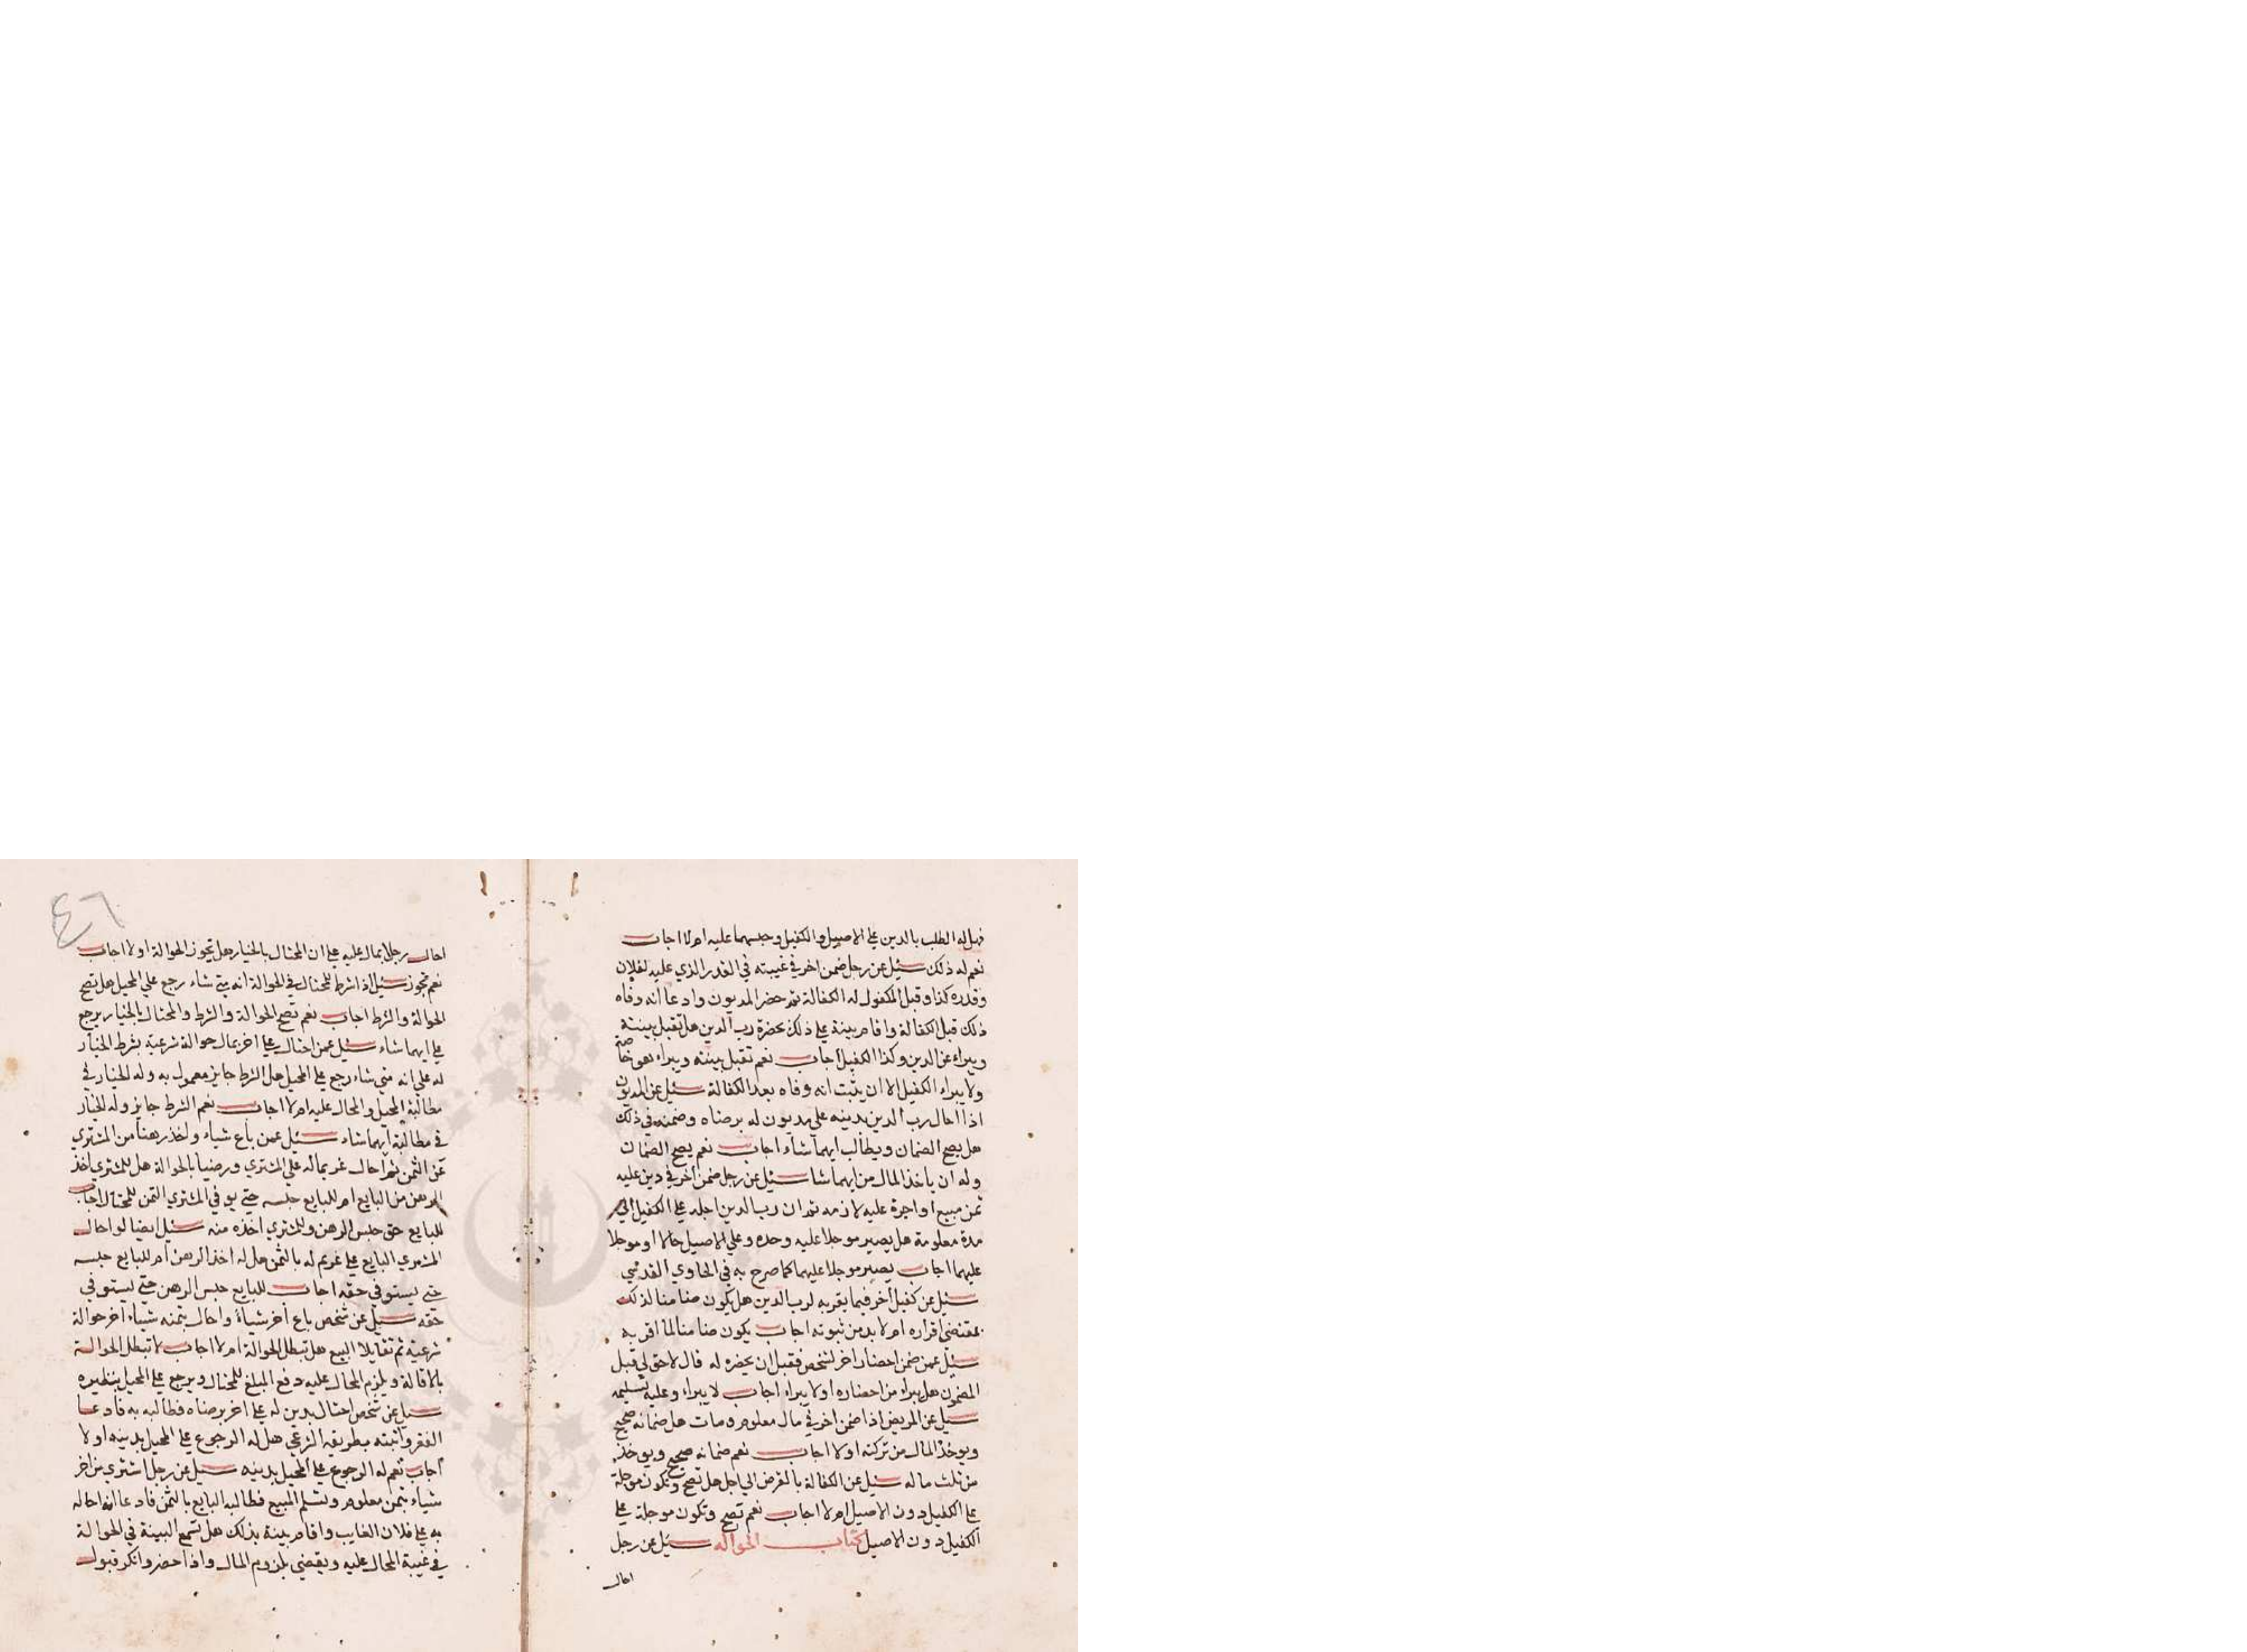 فهل له الطلب بالدين علي الاصيل والكفيل وحبسهما عليه ام لا اجاب
نعم له ذلك سئل عن رجل ضمن اخر في غيبته في القدر الذي عليه لفلان
وقدره كذا وقبل المكفول له الكفالة ثم حضر المديون وادعا انه وفاه
ذلك قبل الكفالة واقام بينة علي ذلك بحضرة رب الدين هل تقبل بينته
ويبراء عن الدين وكذا الكفيل اجاب نعم تقبل بينته ويبراء هو خاصة
ولا يبراء الكفيل الا ان يثبت انه وفاه بعد الكفالة سئل عن المديون
اذا احال رب الدين بدينه علي مديون له برضاه وضمنه في ذلك
هل يصح الضمان ويطالب ايهما شاء اجاب نعم يصح الضمان
وله ان ياخذ المال من ايهما شا سئل عن رجل ضمن اخر في دين عليه
ثمن مبيع او اجرة عليه لازمه ثم ان رب الدين اجله علي الكفيل الي
مدة معلومة هل يصير موجلا عليه وحده وعلي الاصيل حالا او موجلا
عليهما اجاب يصير موجلا عليهما كما صرح به في الحاوي القدسي
سئل عن كفيل اخر فيما يقر به لرب الدين هل يكون ضامنا لذلك
بمقتضي اقراره ام لا بد من ثبوته اجاب يكون ضامنا لما اقر به
سئل عمن ضمن احضار اخر لشخص فقبل ان يحضره له قال لا حق لي قبل
المضمون هل يبراء من احضاره او لا يبراء اجاب لا يبراء وعليه تسليمه
سئل عن المريض اذا ضمن اخر في مال معلوم ومات هل ضمانه صحيح
ويوخذ المال من تركته او لا اجاب نعم ضمانه صحيح ويوخذ
من ثلث ماله سئل عن الكفالة بالقرض الي اجل هل تصح وتكون موجلة
علي الكفيل دون الاصيل ام لا اجاب نعم تصح وتكون موجلة علي
الكفيل دون الاصيل كتاب الحواله سئل عن رجل
احال
٤٦
احال رجلا بمال عليه علي ان المحتال بالخيار هل تجوز الحوالة او لا اجاب
نعم تجوز سئل اذا شرط للمحتال في الحوالة انه متي شاء رجع علي المحيل هل تصح
الحوالة والشرط اجاب نعم تصح الحوالة والشرط والمحتال بالخيار يرجع
علي ايهما شاء سئل عمن احتال علي اخر بمال حوالة شرعية بشرط الخيار
له علي انه متي شاء رجع علي المحيل هل الشرط جايز معمول به وله الخيار في
مطالبة المحيل والمحال عليه ام لا اجاب نعم الشرط جايز وله الخيار
في مطالبة ايهما شاء سئل عمن باع شياء واخذ رهنا من المشتري
عن الثمن ثم احال غريما له علي المشتري ورضيا بالحوالة هل للمشتري اخذ
الرهن من البايع ام للبايع حبسه حتي يوفي المشتري الثمن للمحتال اجاب
للبايع حق حبس الرهن وللمشتري اخذه منه سئل ايضا لو احال
المشتري البايع علي غريم له بالثمن هل له اخذ الرهن ام للبايع حبسه
حتي يستوفي حقه اجاب للبايع حبس الرهن حتي يستوفي
حقه سئل عن شخص باع اخر شياء واحال بثمنه شياء اخر حوالة
شرعية ثم تقايلا البيع هل تبطل الحوالة ام لا اجاب لا تبطل الحوالة
بالاقالة ويلزم المحال عليه دفع المبلغ للمحتال ويرجع علي المحيل بنظيره
سئل عن شخص احتال بدين له علي اخر برضاه فطالبه به فادعا
الفقر واثبته بطريقه الشرعي هل له الرجوع علي المحيل بدينه او لا
اجاب نعم له الرجوع علي المحيل بدينه سئل عن رجل اشتري من اخر
شياء بثمن معلوم وتسلم المبيع فطالبه البايع بالثمن فادعا انه احاله
به علي فلان الغايب واقام بينة بذلك هل تسمع البينة في الحوالة
في غيبة المحال عليه ويقضي بلزوم المال واذا حضر وانكر قبول